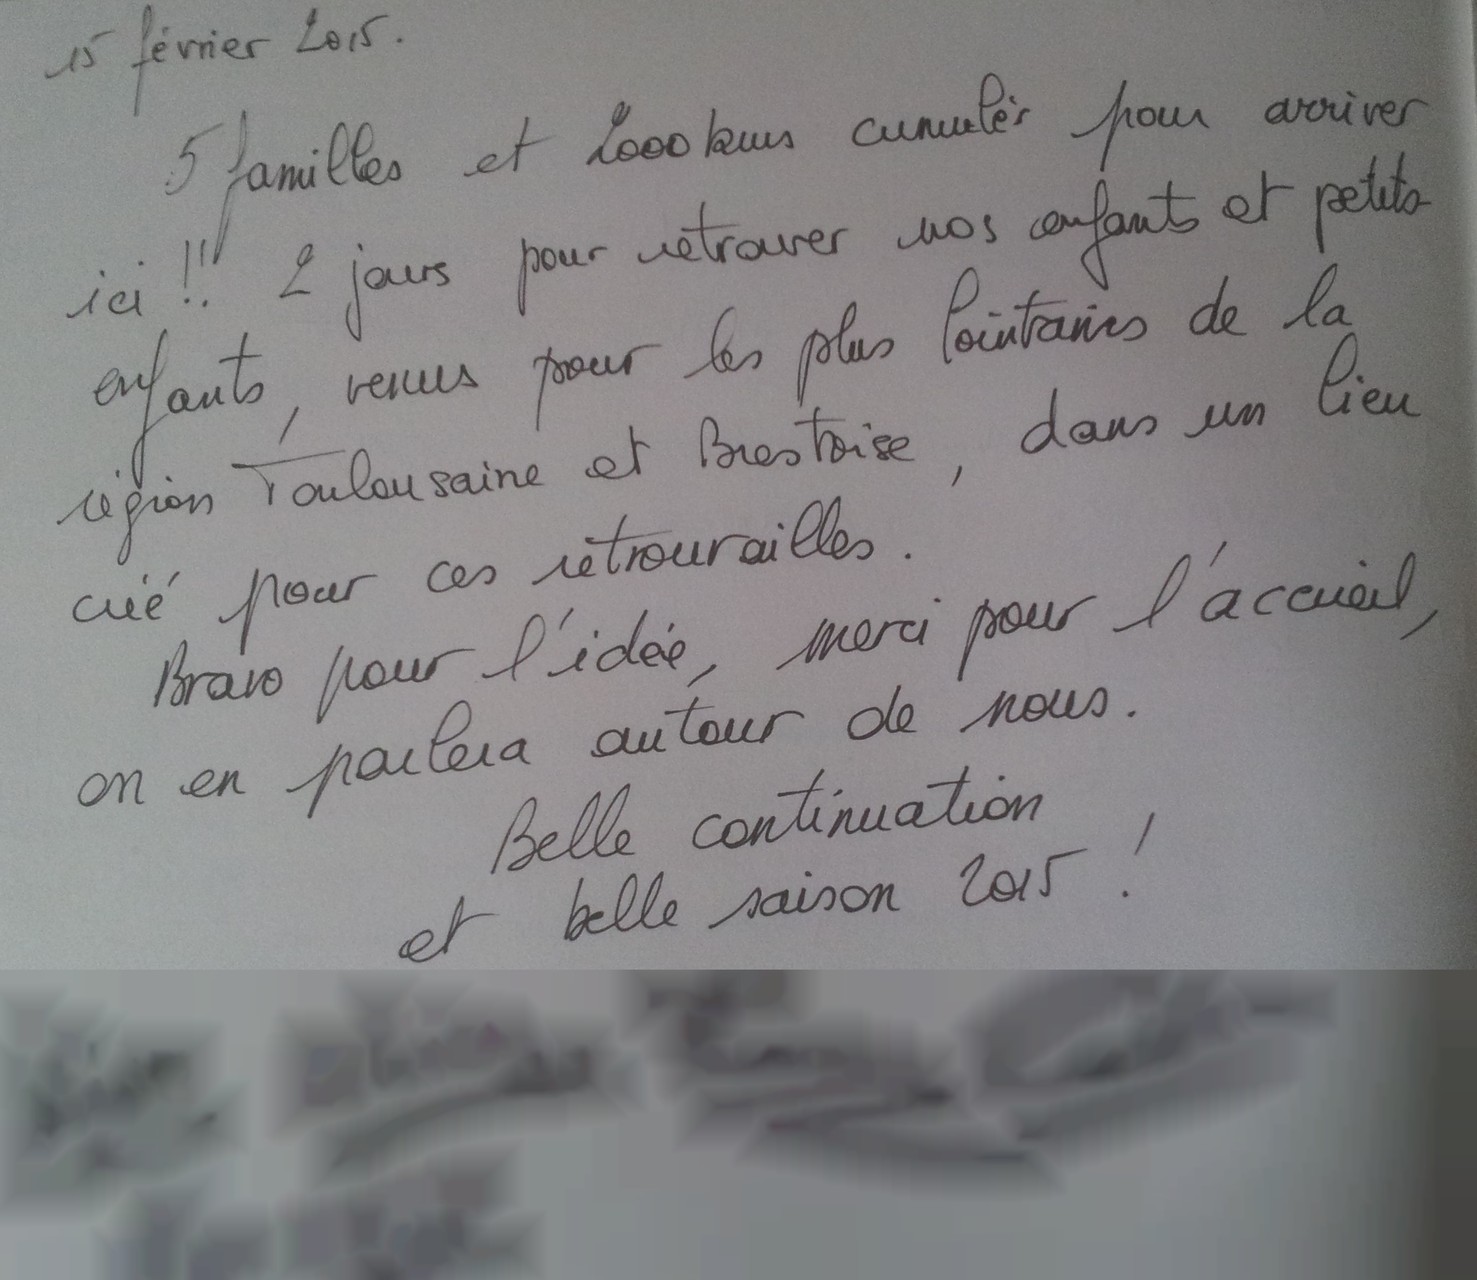 15 février 2015.
5 familles et 2000 kms cumulés pour arriver
ici !!! 2 jours pour retrouver nos enfants et petits
enfants, venus pour les plus lointains de la
région Toulousaine et Brestoise, dans un lieu
créé pour ces retrouvailles.
Bravo pour l'idée, merci pour l'accueil,
on en parlera autour de nous.
Belle continuation
et belle saison 2015 !